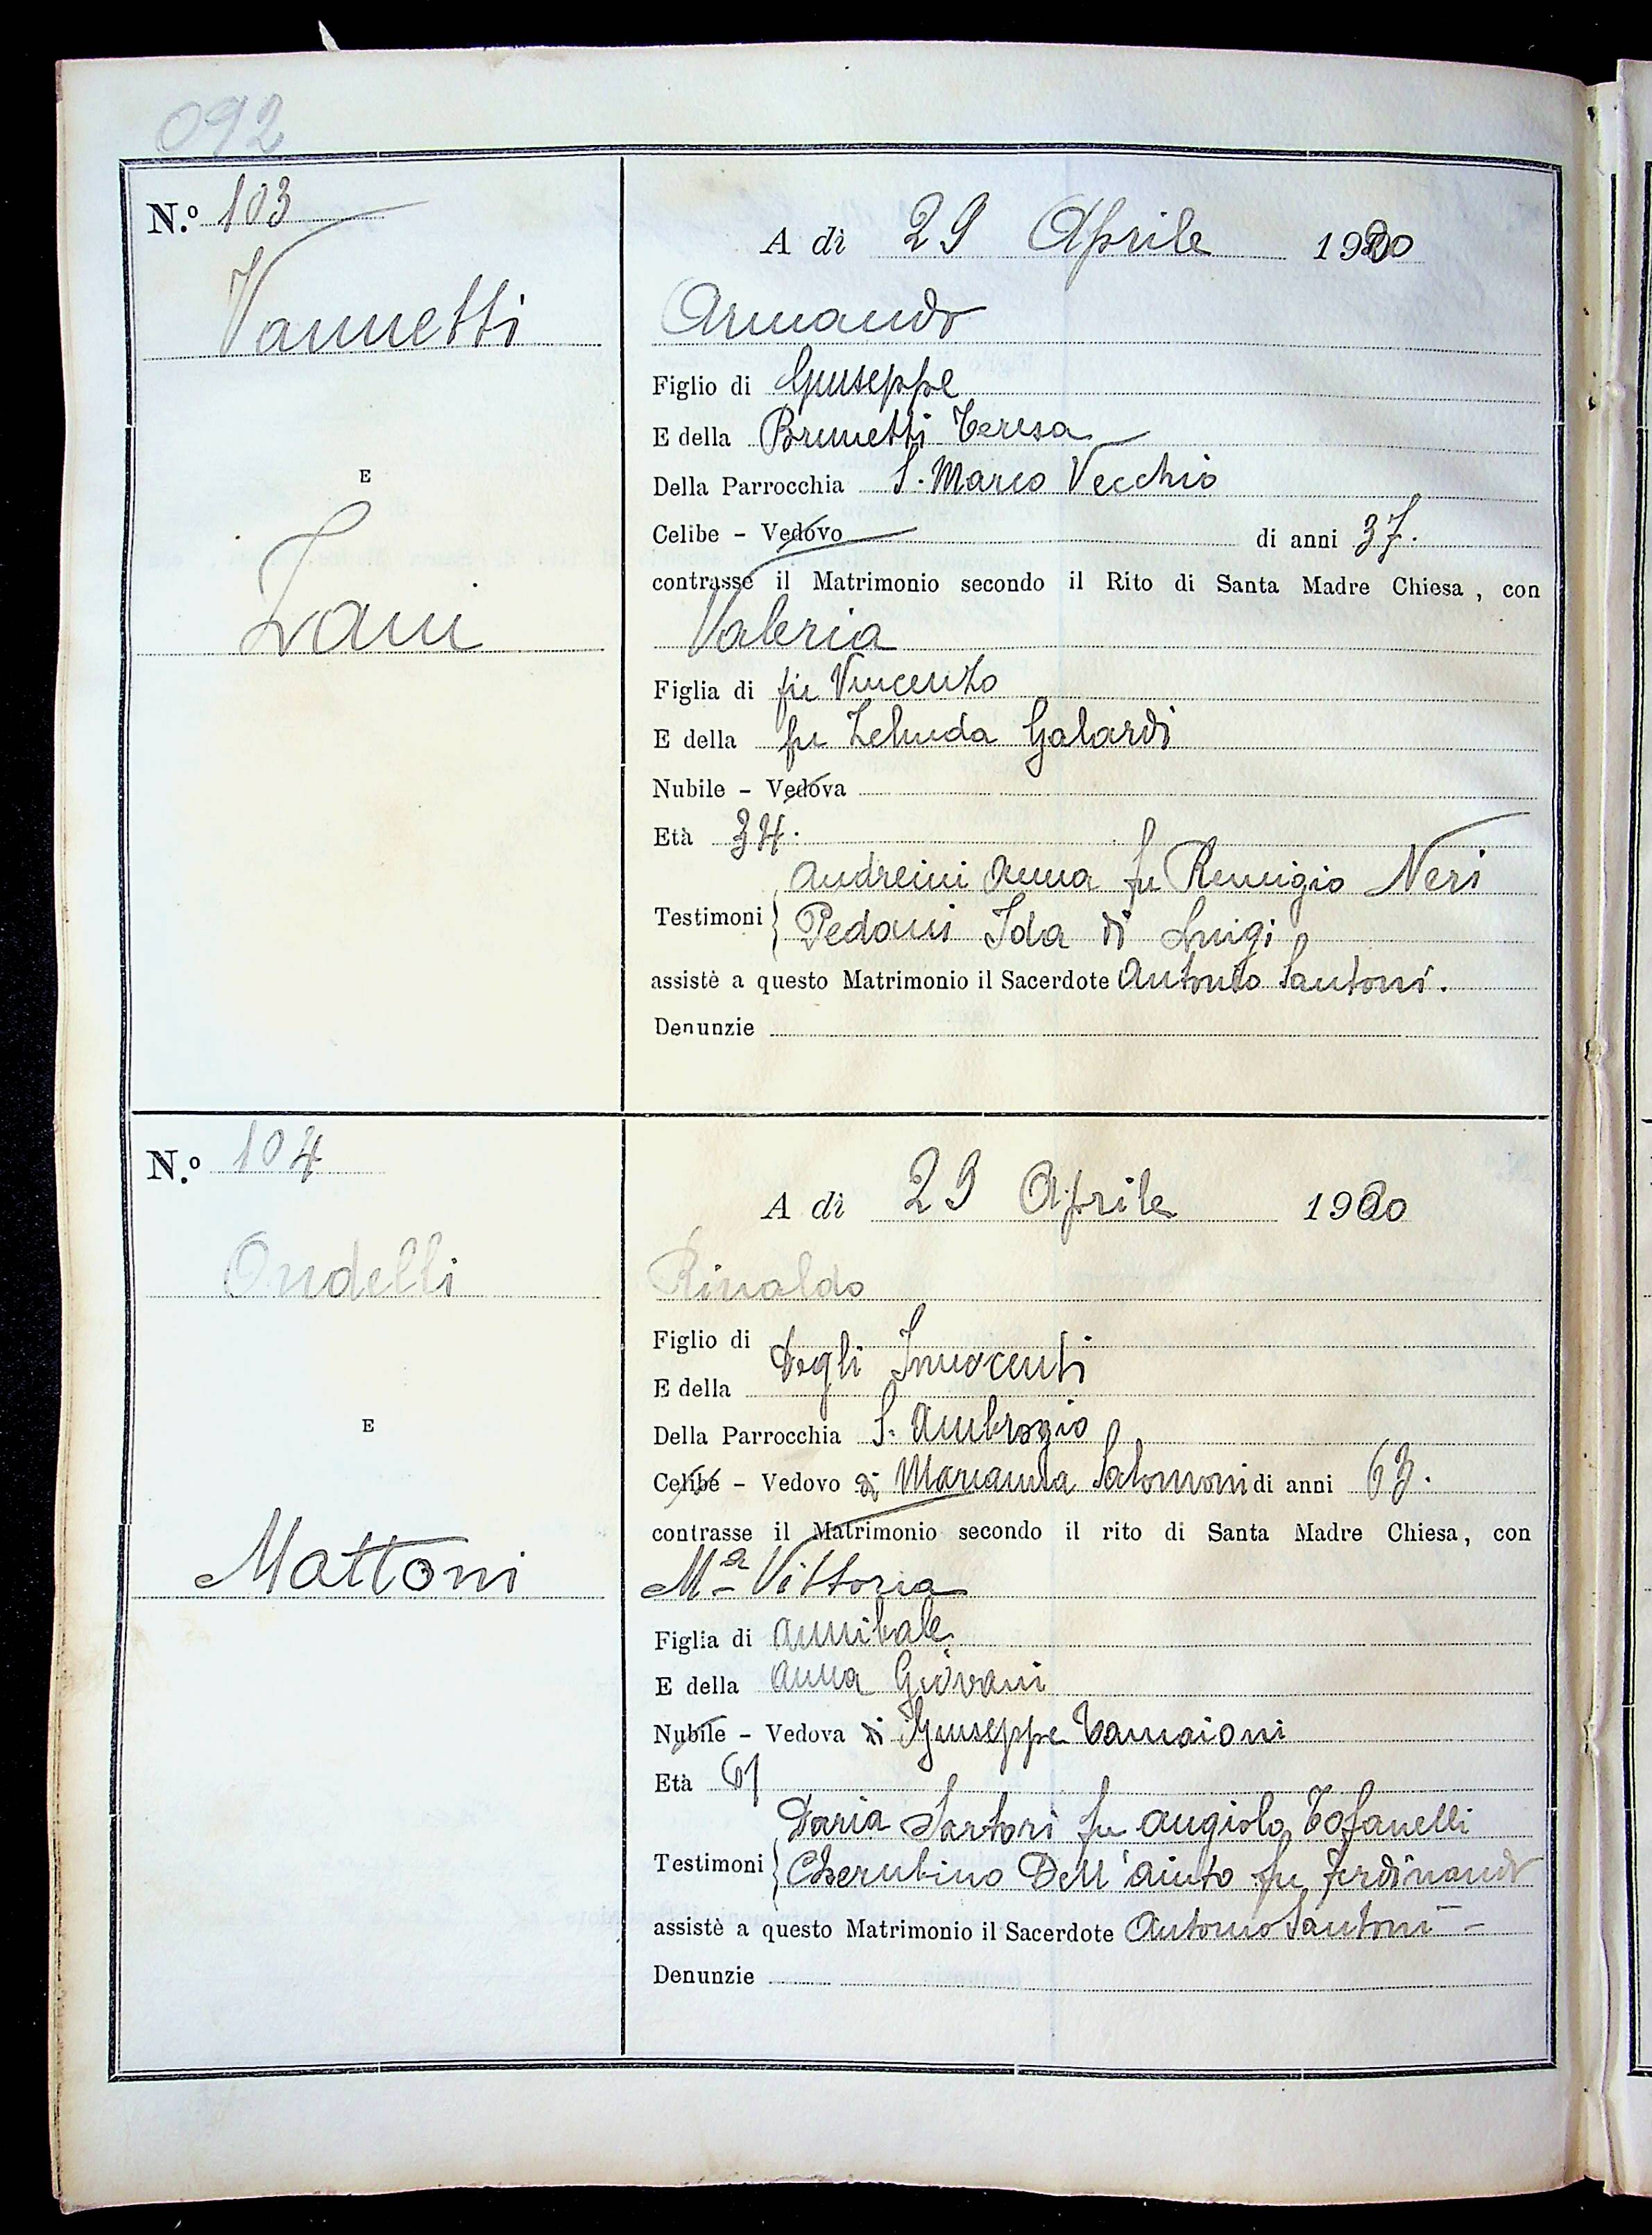 092
N.º 103
A dì 29 Aprile 1920
Vannetti
Armando
Figlio di Giuseppe
E della Brunetti Teresa
E
Della Parrocchia S. Marco Vecchio
Celibe - Vedovo di anni 37.
contrasse il Matrimonio secondo il Rito di Santa Madre Chiesa, con
Zani
Valeria
Figlia di fu Vincenzo
E della fu Zelinda Galardi
Nubile - Vedova
Età 34.
Andreini Anna fu Remigio Neri
Testimoni Pedani Ida di Luigi
assistè a questo Matrimonio il Sacerdote Antonio Santoni.
Denunzie
N.º 104
A dì 29 Aprile 1920
Ondelli
Rinaldo
Figlio di Degli Innocenti
E della
E
Della Parrocchia S. Ambrogio
Celibe - Vedovo di Marianna Salomoni di anni 63.
contrasse il Matrimonio secondo il rito di Santa Madre Chiesa, con
Mattoni
Mª Vittoria
Figlia di Annibale
E della Anna Giovani
Nubile - Vedova di Giuseppe
Età 61
Daria Sartori fu Angiolo Tofanelli
Testimoni Cherubino Dell'aiuto fu Ferdinando
assistè a questo Matrimonio il Sacerdote Antonio Santoni =
Denunzie